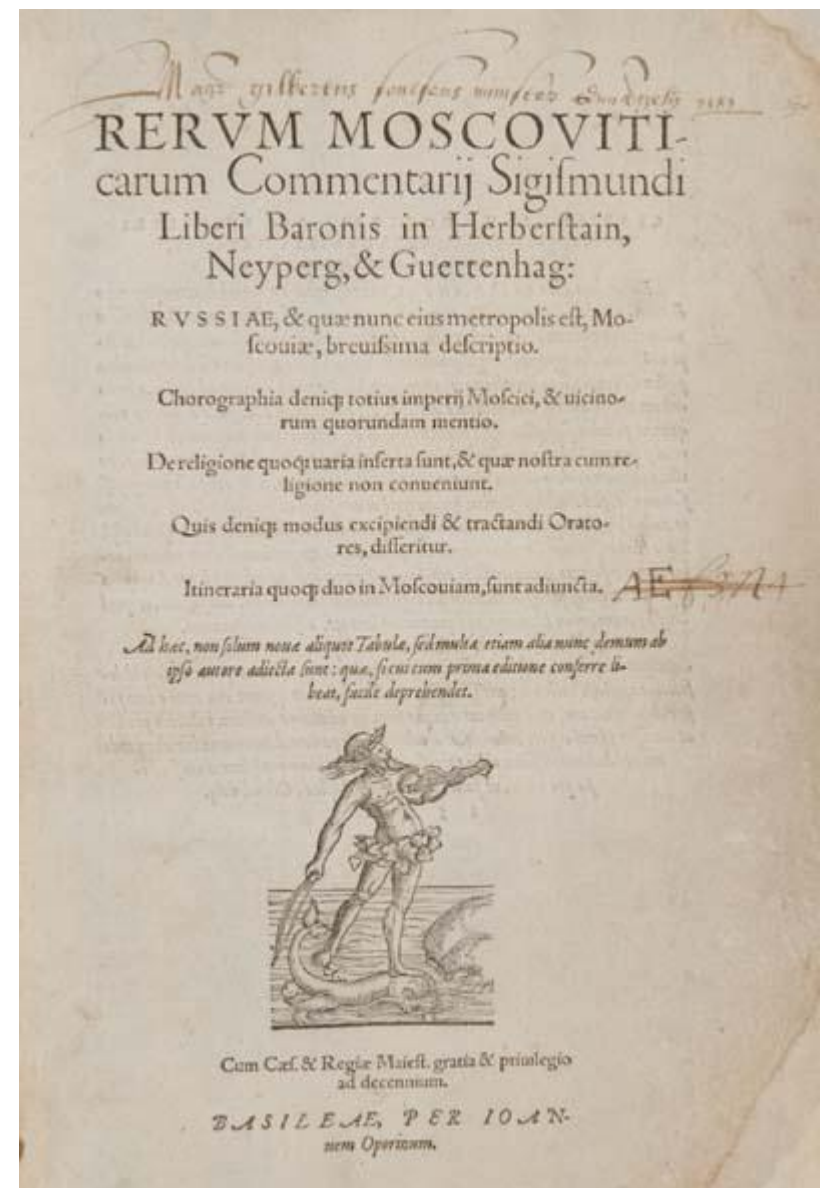 Magr gilbertus
RERVM MOSCOVITI-
carum Commentarij Sigiſmundi
Liberi Baronis in Herberſtain,
Neyperg, & Guettenhag:
RVSSIAE, & quæ nunc eius metropolis eſt, Mo-
ſcouiæ, breuiſsima deſcriptio.
Chorographia deniq; totius imperij Moſcici, & uicino-
rum quorundam mentio.
De religione quoq; uaria inſerta ſunt, & quæ noſtra cum re-
ligione non conueniunt.
Quis deniq; modus excipiendi & tractandi Orato-
res, diſſeritur.
Itineraria quoq; duo in Moſcouiam, ſunt adiuncta. AE
Ad hæc, non ſolum nouæ aliquot Tabulæ, ſed multa etiam alia nunc demum ab
ipſo autore adiecta ſunt: quæ, ſi cui cum prima editione conferre li-
beat, facile deprehendet.
Cum Cæſ. & Regiæ Maieſt. gratia & priuilegio
ad decennium.
BASILEAE, PER IOAN-
nem Oporinum.